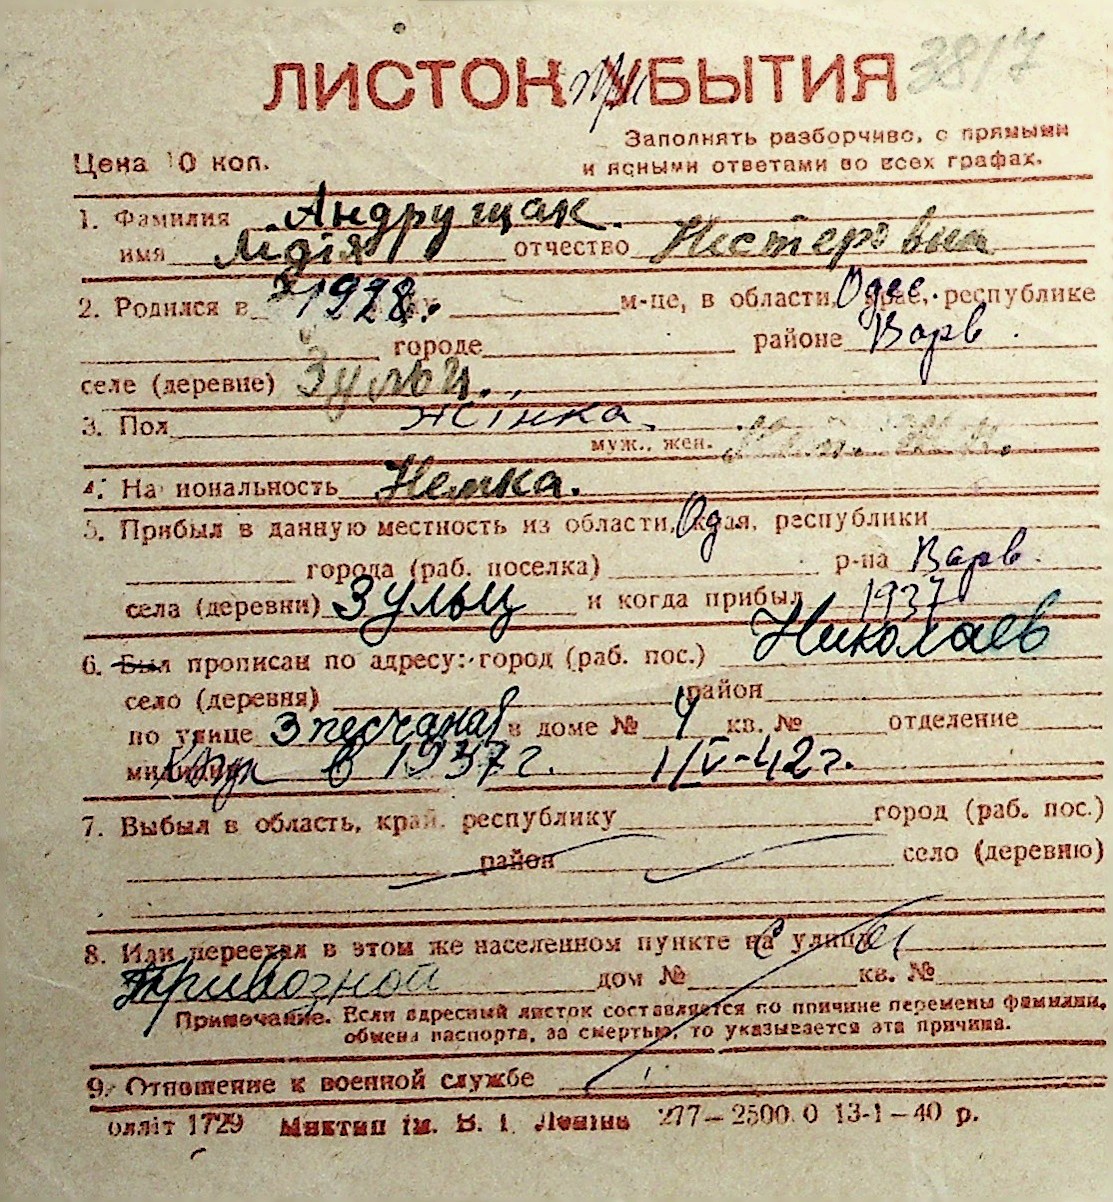 ЛИСТОК при УБЫТИЯ 3817
Заполнять разборчиво, с прямыми
Цена 10 коп. и ясными ответами во всех графах.
1. Фамилия Андрущак
имя Лідія отчество Нестеровна
2. Родился в 1928. м-це, в области, Одес. крае, республике
городе районе Варв.
селе (деревне) Зульц.
3. Пол жінка.
муж., жен.
4. Национальность Немка.
5. Прибыл в данную местность из области, Од. края, республики
города (раб. поселка) р-на Варв.
села (деревни) Зульц и когда прибыл 1937
6. Был прописан по адресу: город (раб. пос.) Николаев
село (деревня) район
по улице 3 песчаная в доме № 4 кв. № отделение
милиции в 1937 г. 1/V-42 г.
7. Выбыл в область, край, республику город (раб. пос.)
район село (деревню)
8. Или переехал в этом же населенном пункте на улицу
Привозной дом № кв. №
Примечание. Если адресный листок составляется по причине перемены фамилии,
обмена паспорта, за смертью, то указывается эта причина.
9. Отношение к военной службе
олліт 1729 Миктип ім. В. І. Леніна 277—2500.0 13-1—40 р.